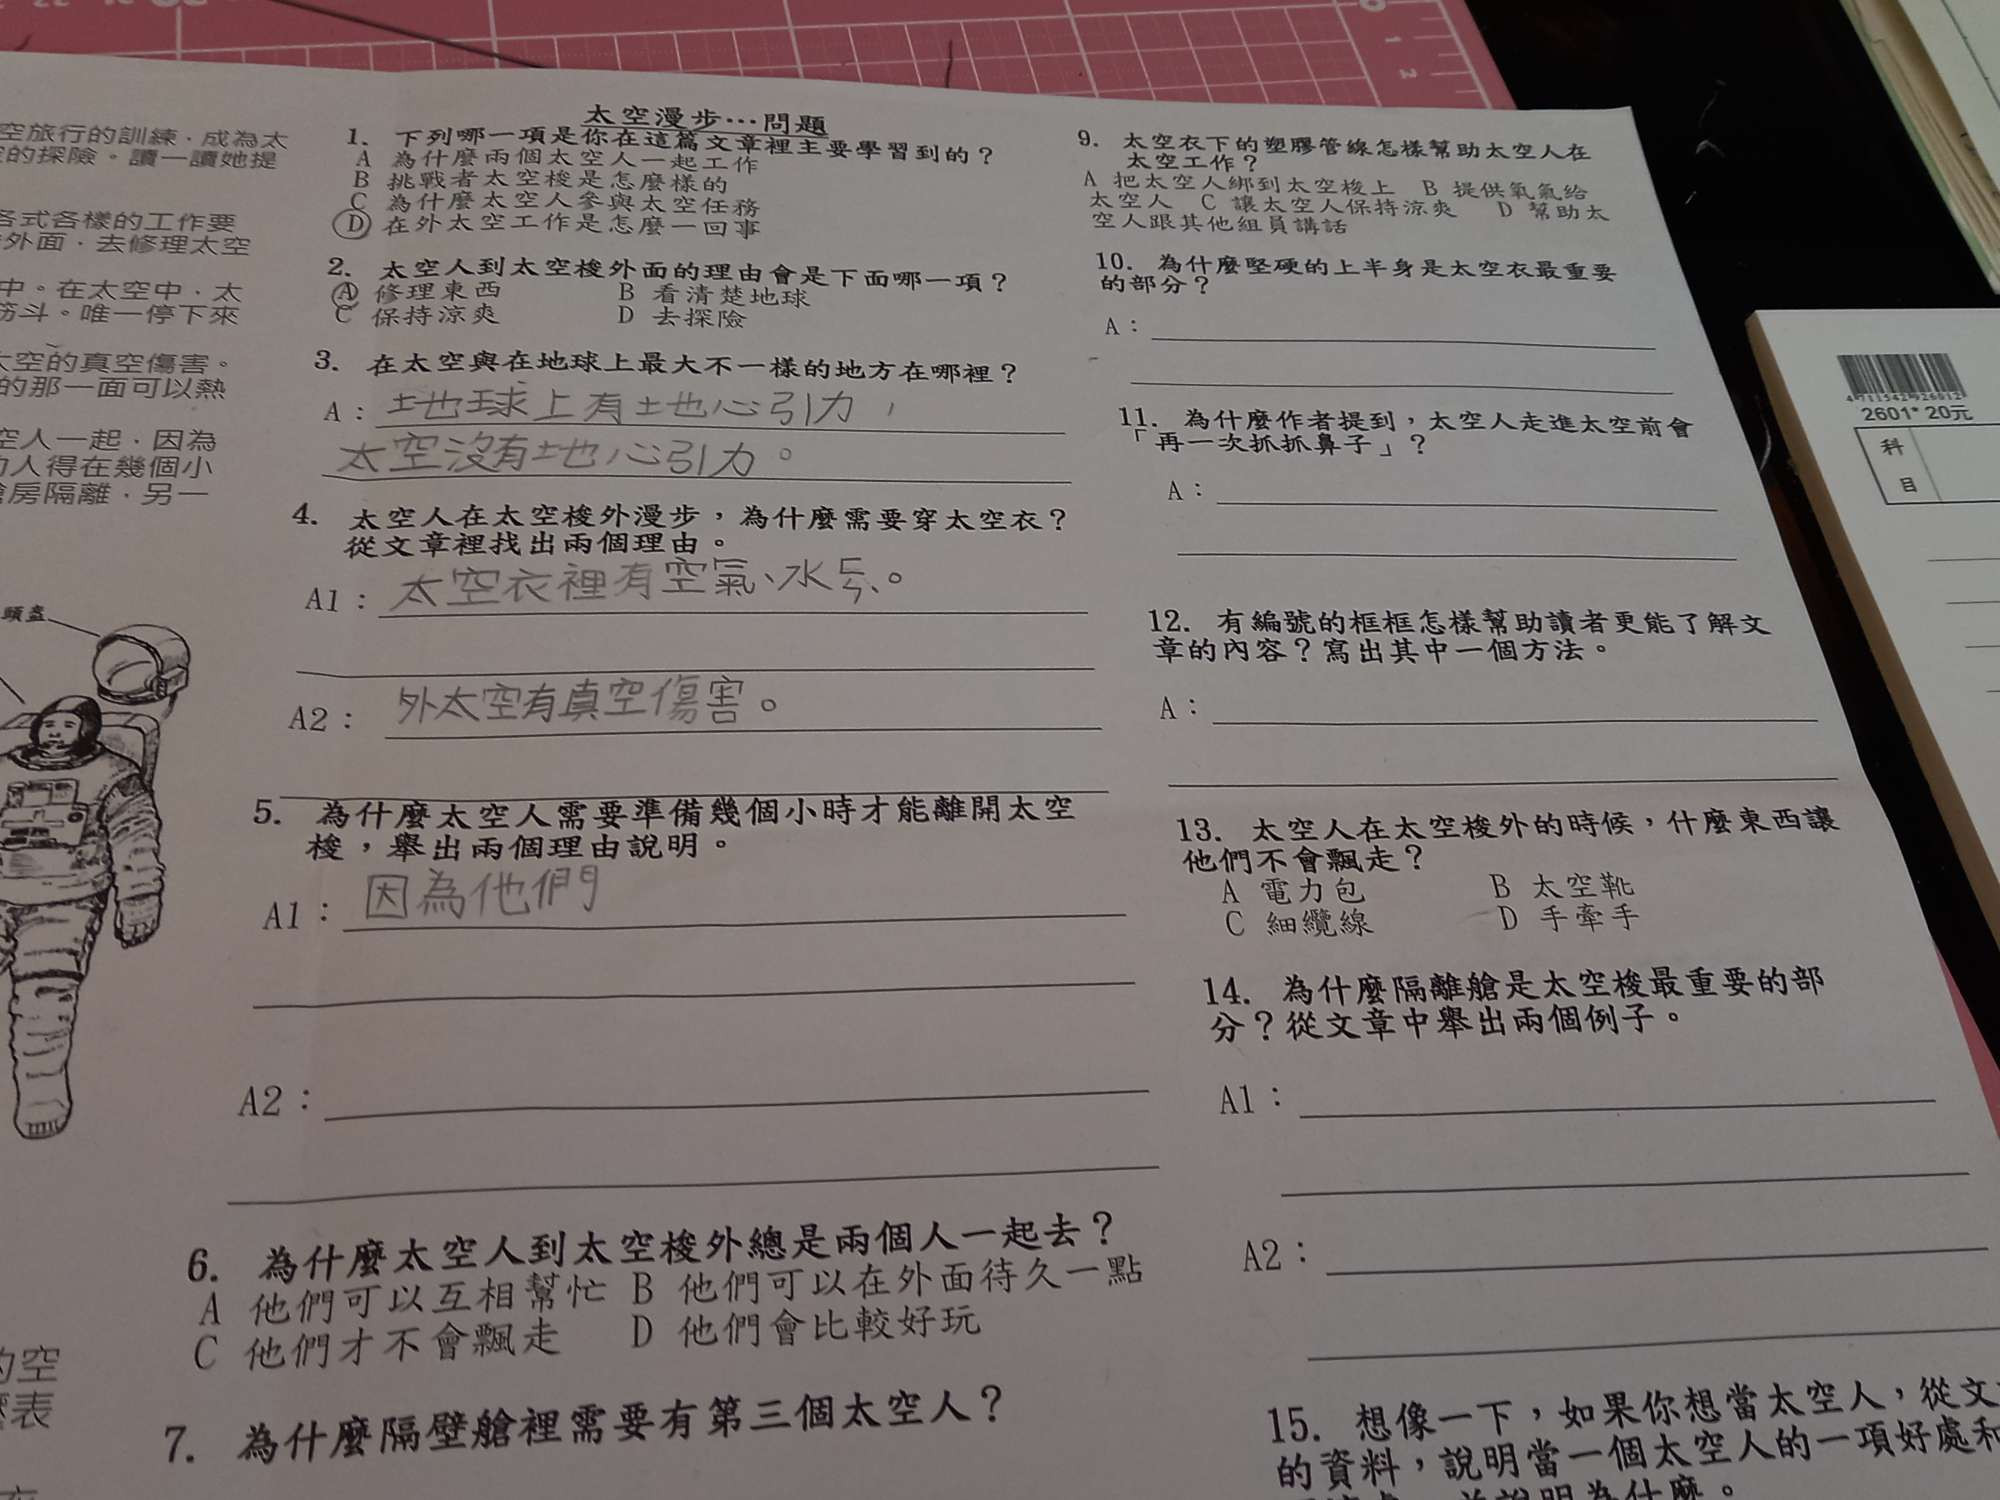 空旅行的訓練．成為太
的探險。讀一讀她提
各式各樣的工作要
外面．去修理太空
中。在太空中．太
筋斗。唯一停下來
太空的真空傷害。
的那一面可以熱
空人一起．因為
人得在幾個小
艙房隔離．另一
頭盔
的空
表
太空漫步…問題
1. 下列哪一項是你在這篇文章裡主要學習到的？
A 為什麼兩個太空人一起工作
B 挑戰者太空梭是怎麼樣的
C 為什麼太空人參與太空任務
D 在外太空工作是怎麼一回事
2. 太空人到太空梭外面的理由會是下面哪一項？
A 修理東西 B 看清楚地球
C 保持涼爽 D 去探險
3. 在太空與在地球上最大不一樣的地方在哪裡？
A：地球上有地心引力，
太空沒有地心引力。
4. 太空人在太空梭外漫步，為什麼需要穿太空衣？
從文章裡找出兩個理由。
A1：太空衣裡有空氣、水ㄣˋ。
A2：外太空有真空傷害。
5. 為什麼太空人需要準備幾個小時才能離開太空
梭，舉出兩個理由說明。
A1：因為他們
A2：
6. 為什麼太空人到太空梭外總是兩個人一起去？
A 他們可以互相幫忙 B 他們可以在外面待久一點
C 他們才不會飄走 D 他們會比較好玩
7. 為什麼隔壁艙裡需要有第三個太空人？
9. 太空衣下的塑膠管線怎樣幫助太空人在
太空工作？
A 把太空人綁到太空梭上 B 提供氧氣給
太空人 C 讓太空人保持涼爽 D 幫助太
空人跟其他組員講話
10. 為什麼堅硬的上半身是太空衣最重要
的部分？
A：
11. 為什麼作者提到，太空人走進太空前會
「再一次抓抓鼻子」？
A：
12. 有編號的框框怎樣幫助讀者更能了解文
章的內容？寫出其中一個方法。
A：
13. 太空人在太空梭外的時候，什麼東西讓
他們不會飄走？
A 電力包 B 太空靴
C 細纜線 D 手牽手
14. 為什麼隔離艙是太空梭最重要的部
分？從文章中舉出兩個例子。
A1：
A2：
15. 想像一下，如果你想當太空人，從文
的資料，說明當一個太空人的一項好處和
說明為什麼。
4711542926012
2601* 20元
科
目